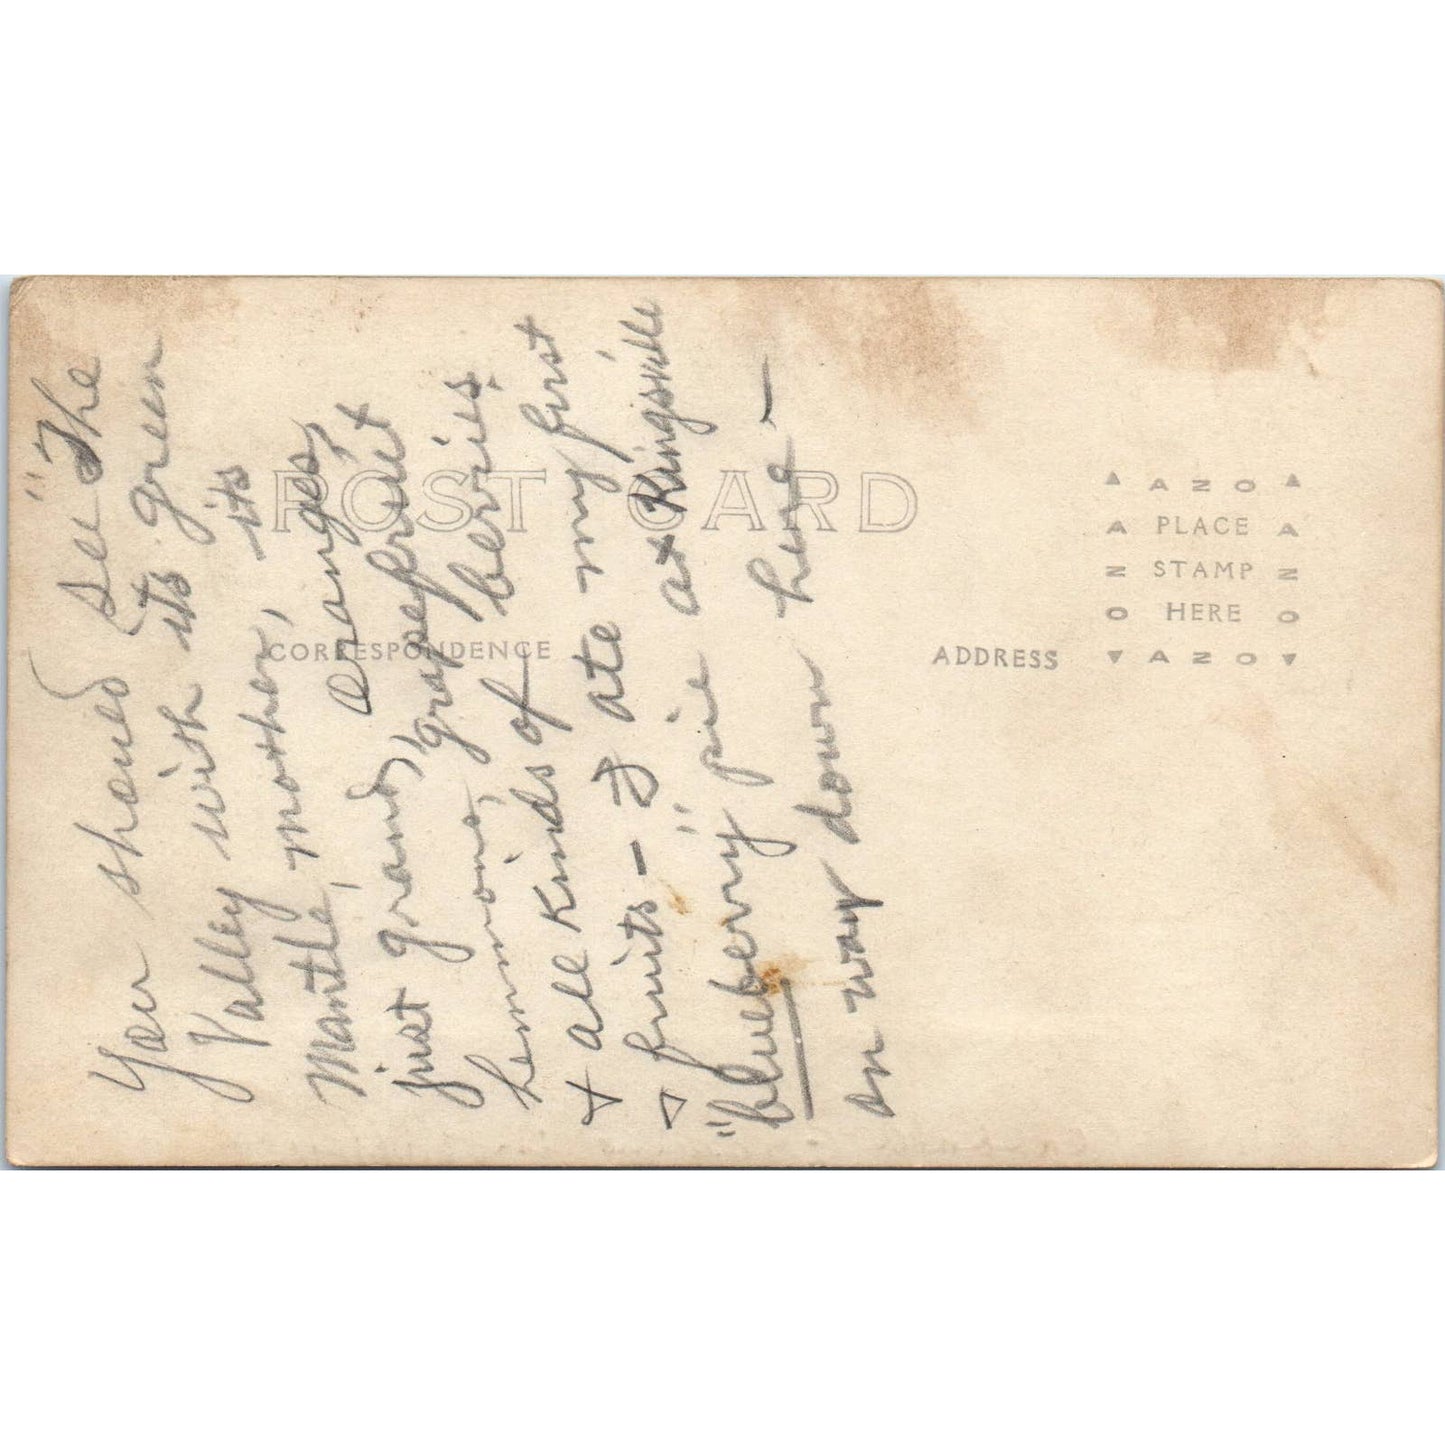 You shoued see "The
Valley" with its green
Mantle, mother, its
just grand, oranges,
lemmons, grapefruit
+ all kinds of berries
+ fruits - I ate my first
"blueberry" pie at Kingsville
on way down here -
POST CARD
CORRESPONDENCE
ADDRESS
AZO
PLACE
STAMP
HERE
AZO
AZO
AZO